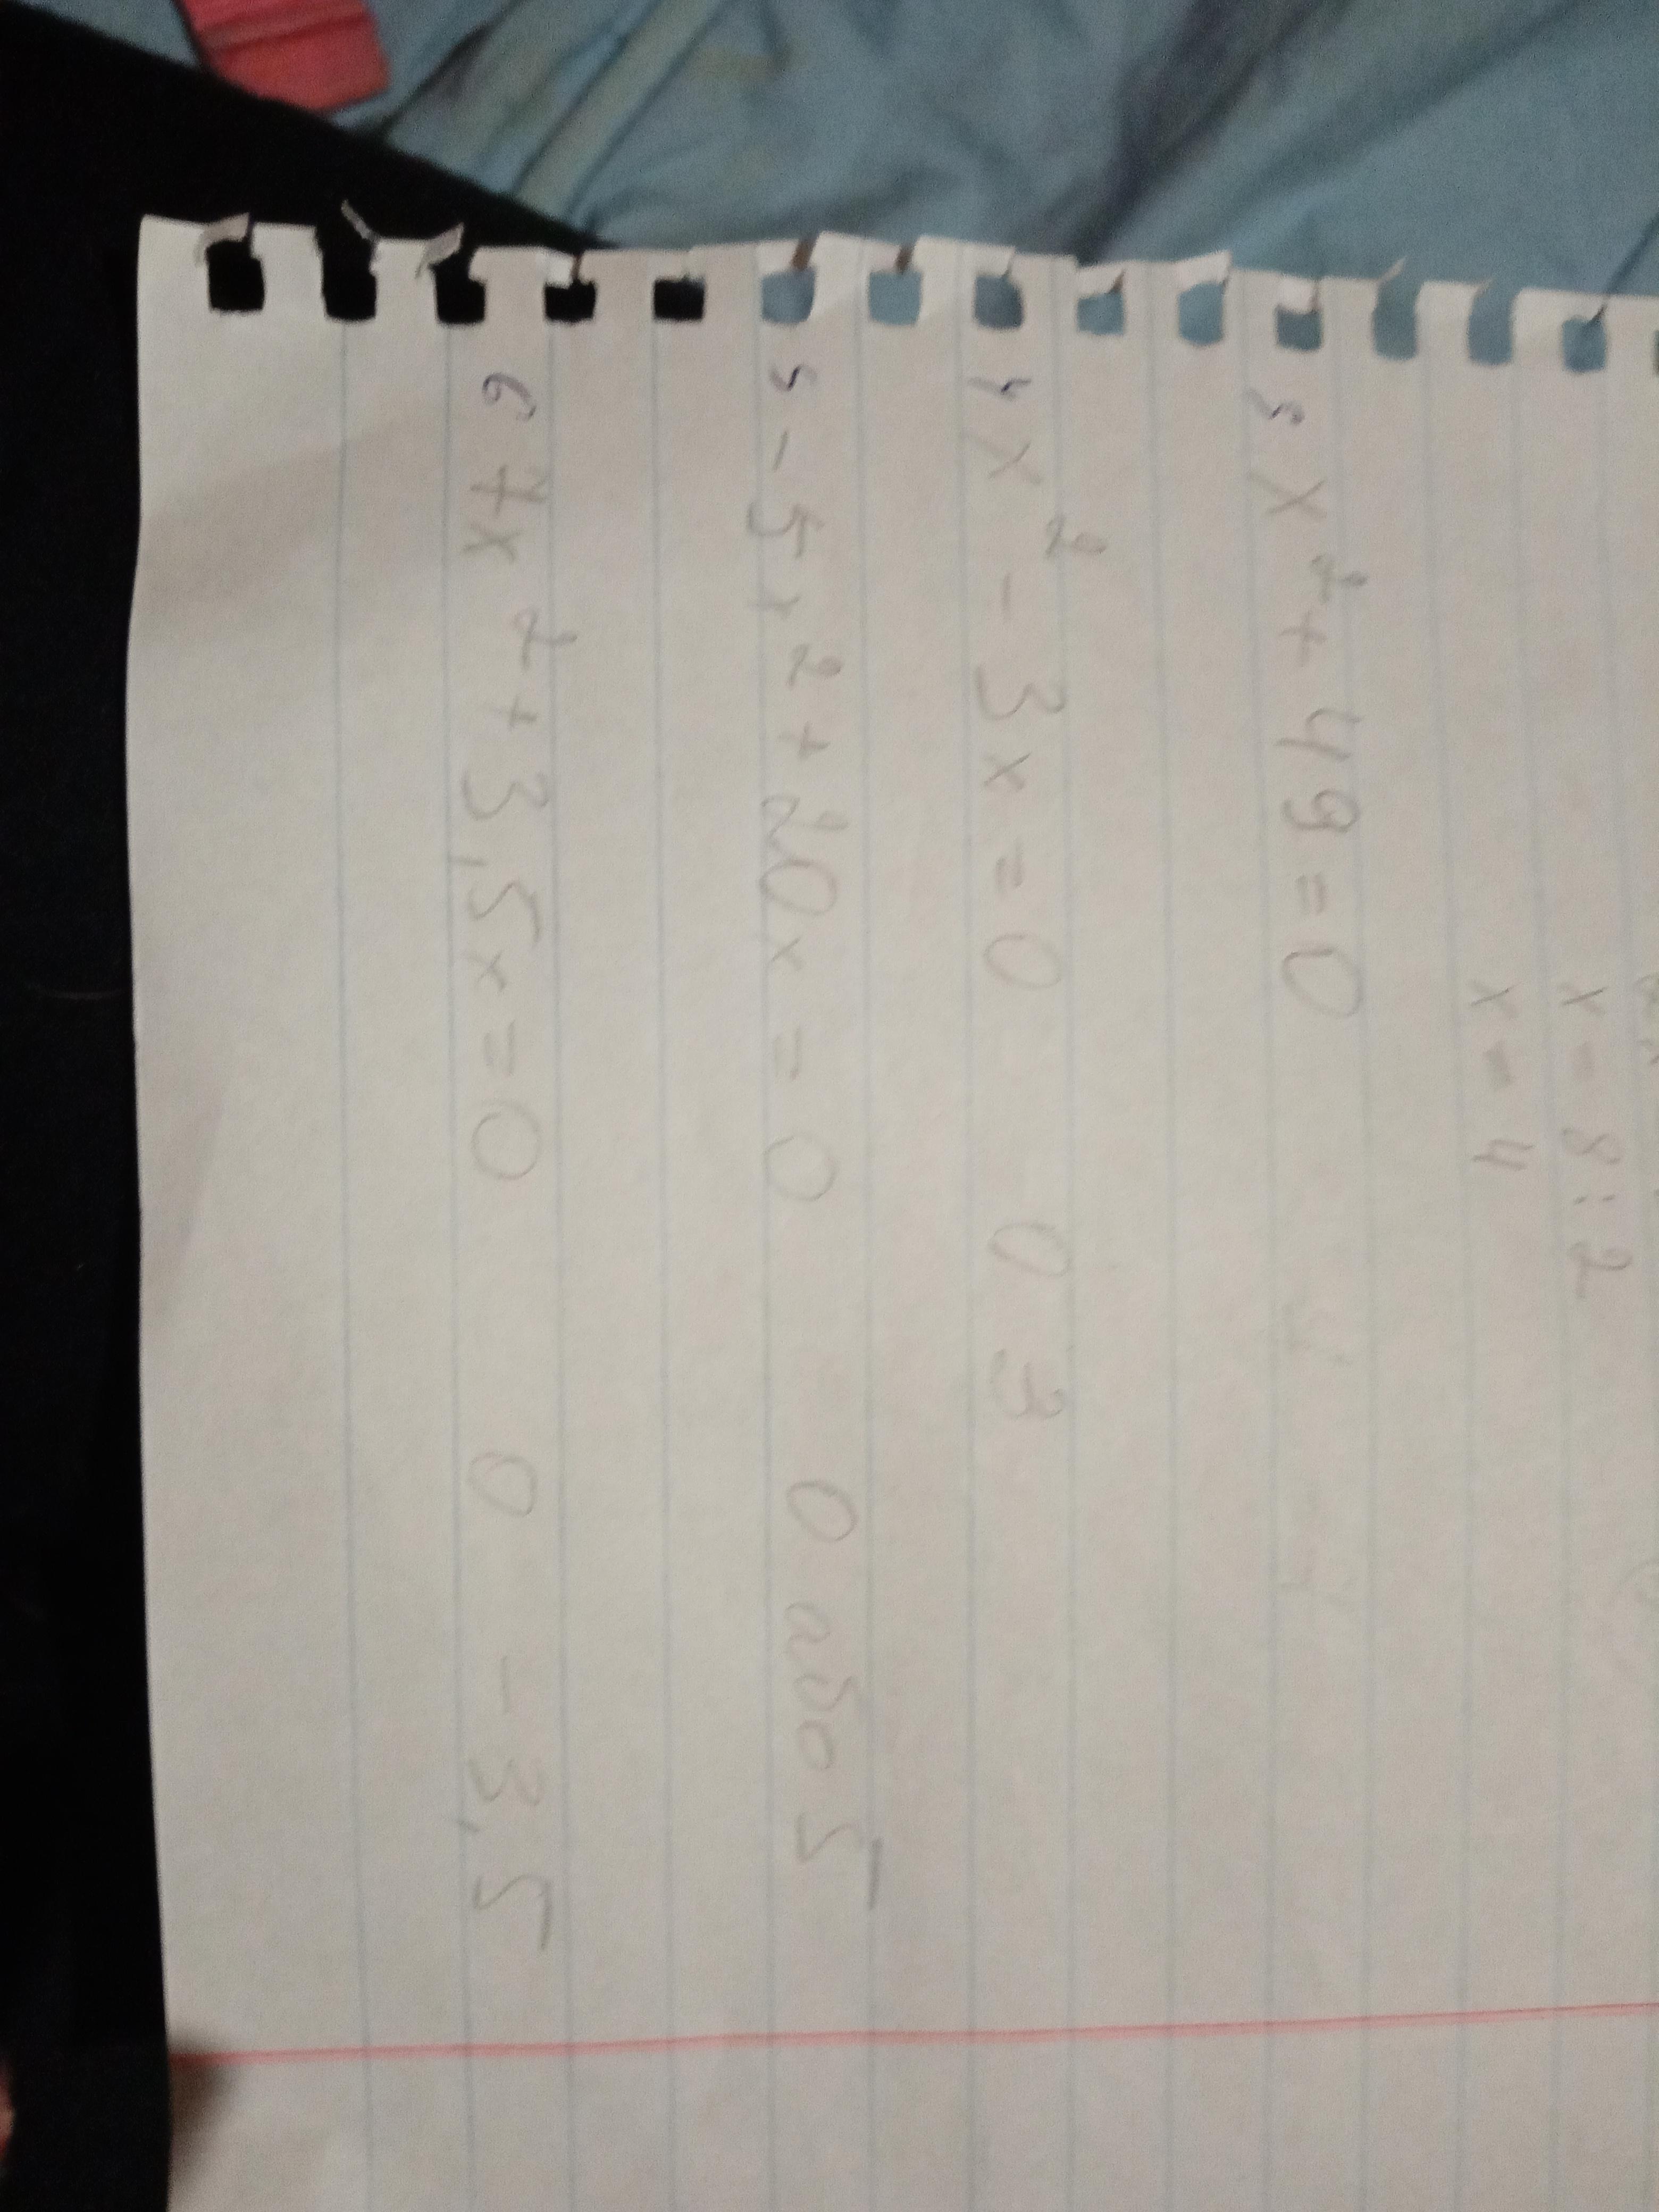 x = 8 : 2
x = 4
3 x² + 49 = 0
4 x² - 3x = 0 0 3
5 - 5x² + 20x = 0 0 або 5
6 7x² + 3,5x = 0 0 - 3,5